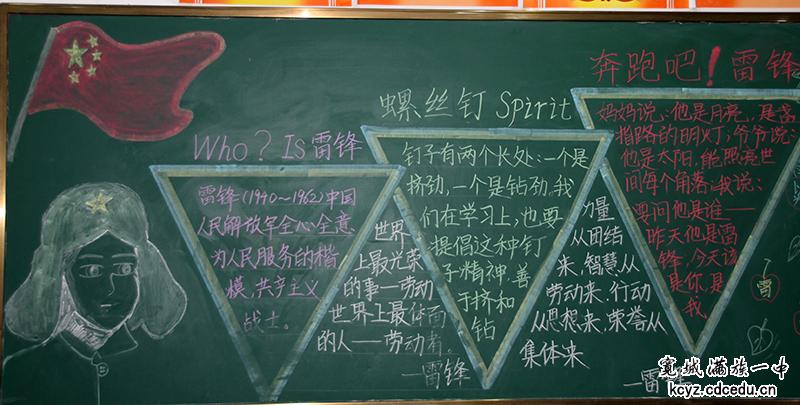 Who? Is雷锋
雷锋(1940~1962)中国
人民解放军全心全意
为人民服务的楷
模,共产主义
战士。
世界
上最光荣
的事——劳动
世界上最体面
的人——劳动者。
—雷锋
螺丝钉 Spirit
钉子有两个长处:一个是
挤劲,一个是钻劲.我
们在学习上,也要
提倡这种钉
子精神,善
于挤和
钻
力量
从团结
来,智慧从
劳动来,行动
从思想来,荣誉从
集体来
—雷
奔跑吧!雷锋
妈妈说:他是月亮,是
指路的明灯;爷爷说:
他是太阳,能照亮世
间每个角落;我说:
要问他是谁——
昨天他是雷
锋,今天该
是你,是
我
雷
宽城满族一中
kcyz.cdcedu.cn